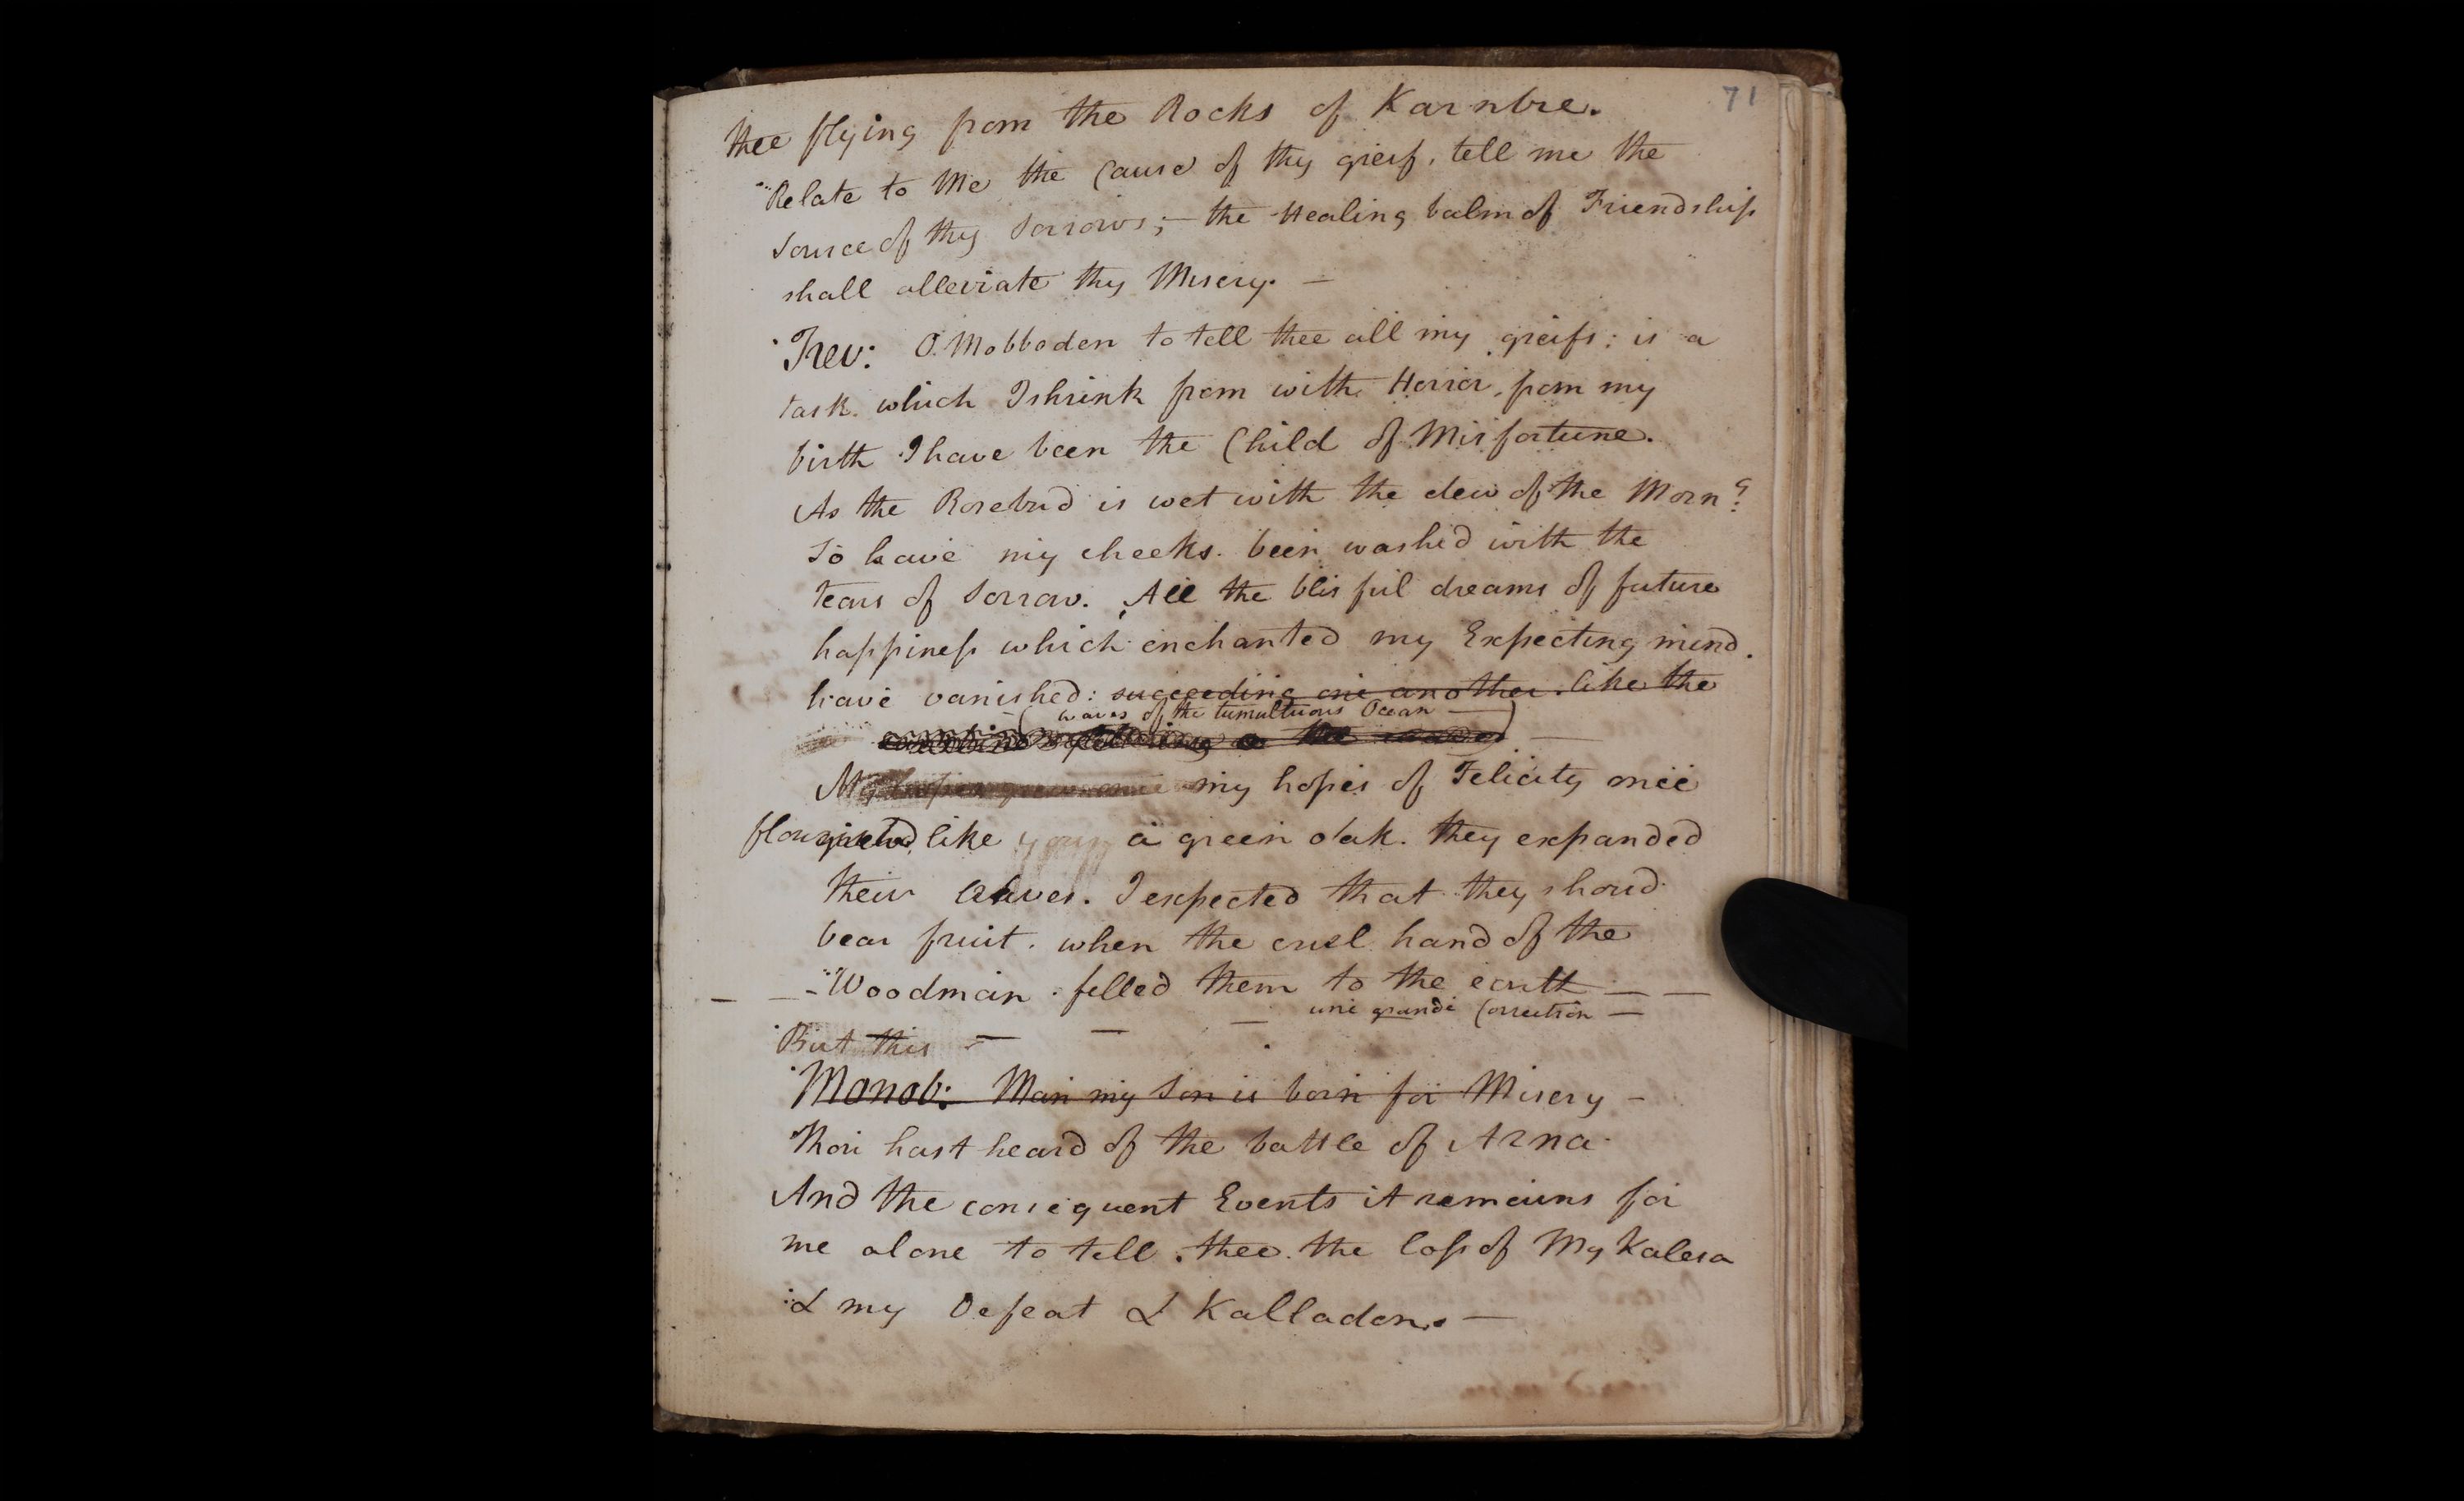 71
thee flying from the Rocks of Karnbre.
Relate to Me the Cause of thy greif, tell me the
source of thy Sorrows; – the Healing balm of Friendship
shall alleviate thy Misery. –
Trev: O. Mobboden to tell thee all my greifs: is a
task. which I shrink from with Horror, from my
birth I have been the Child of Misfortune.
As the Rosebud is wet with the dew of the Morn?
So have my cheeks. been washed with the
tears of Sorrow. All the blisful dreams of future
happiness which enchanted my Expecting mind.
have vanished: succeeding one another. like the
waves of the tumultuous Ocean –
the waves –
My my hopes of Felicity once
like a green oak. they expanded
their leaves. I expected that they shoud
bear fruit. when the cruel hand of the
– – Woodman. felled them to the earth – –
une grande Correction –
But this – – –
Monob: Man my Son is born for Misery –
Thou hast heard of the battle of Arna
And the consequent Events it remains for
me alone to tell. thee. the loss of My Kalesa
& my Defeat & Kalladon. –